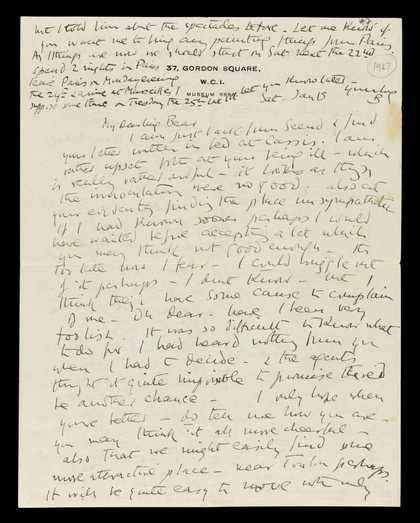 but I told him about the spectacles before. Let me know if
you want me to bring any painting things from Paris.
As things are now we should start on Sat. next the 22nd
spend 2 nights in Paris
leave Paris on Monday evening
the 24th & arrive at Marseilles I
suppose some time on Tuesday the 25th.
let you know later -
your loving
B
1927
37, GORDON SQUARE,
W.C.1.
MUSEUM
Sat. Jan 15
My darling Bear
I am just back from Seend & find
your letter written in bed at Cassis. I am
rather upset both at your being ill - which
is really rather awful - it looks as though
the inoculation were no good, also at
your evidently finding the place unsympathetic
If I had known sooner perhaps I would
have waited before accepting a let which
you may think not good enough. It's
too late now I fear - I could wriggle out
of it perhaps - I don't know - but I
think they'd have some cause to complain
of me - Oh dear - have I been very
foolish. It was so difficult to know what
to do for I had heard nothing from you
when I had to decide - & the agents
thought it quite impossible to promise there'd
be another chance - I only hope when
you're better - do tell me how you are -
you may think it all more cheerful -
also that we might easily find some
more attractive place - near Toulon perhaps.
It will be quite easy to move with only